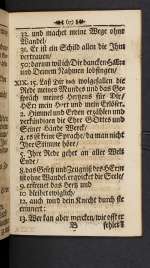 (17)
32. und machet meine Wege ohne
Wandel/
31. Er ist ein Schild allen die Ihm
vertrauen/
50. darum will ich Dir dancken HErr
und Deinem Nahmen lobsingen/
XIX. 15. Laß Dir wol gefallen die
Rede meines Mundes und das Ge-
spräch meines Hertzens für Dir/
HErr mein Hort und mein Erlöser.
2. Himmel und Erden erzählen und
verkündigen die Ehre GOttes und
Seiner Hände Werck/
4. es ist keine Sprache/ da man nicht
Ihre Stimme höre/
5. Ihre Rede gehet an aller Welt
Ende/
8. das Gesetz und Zeugniß des HErrn
ist ohne Wandel, erquicket die Seele/
9. erfreuet das Hertz und
10. bleibet ewiglich/
12. auch wird dein Knecht durch sie
erinnert;
13. Wer kan aber mercken/ wie oft er
B fehlet